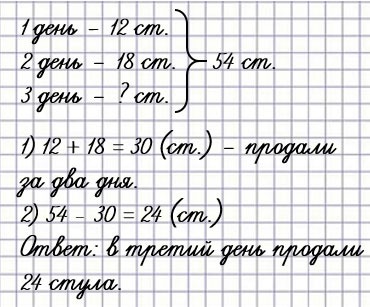 1 день – 12 ст.
2 день – 18 ст. – 54 ст.
3 день – ? ст.
1) 12 + 18 = 30 (ст.) – продали
за два дня.
2) 54 – 30 = 24 (ст.)
Ответ: в третий день продали
24 стула.